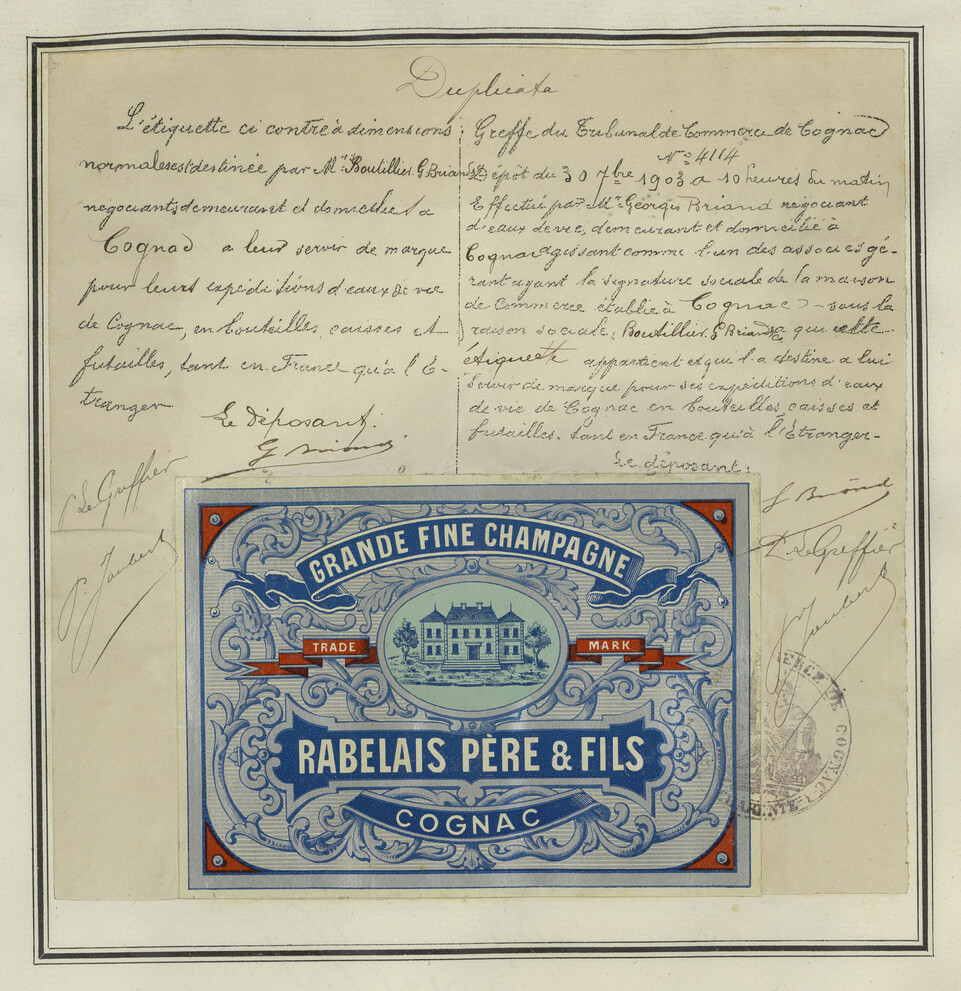 Duplicata
L'étiquette ci contre à dimensions
normales est destinée par Mrs Boutillier. G Briand &
negociants demeurant et domiciliés a
Cognac a leur servir de marque
pour leurs expéditions d'eaux de vie
de Cognac, en bouteilles, caisses et
futailles, tant en France qu'à l'É-
tranger
Le déposant.
G Briand
P Le Greffier
P. Joubert
Greffe du Tribunal de Commerce de Cognac
No 4114
Dépôt du 30 7bre 1903 a 10 heures du matin
Effectué par Mr Georges Briand négociant
d'eaux de vie, demeurant et domicilié à
Cognac agissant comme l'un des associés gé-
rant ayant la signature sociale de la maison
de Commerce établie à Cognac - sous la
raison sociale, Boutillier. G Briand & a qui cette
étiquette appartient et qui l'a destine a lui
servir de marque pour ses expéditions d'eaux
de vie de Cognac en bouteilles, caisses et
futailles. tant en France qu'à l'Etranger-
Le déposant:
G Briand
P. Le Greffier
Joubert
GRANDE FINE CHAMPAGNE
TRADE MARK
RABELAIS PÈRE & FILS
COGNAC
DE COGNAC